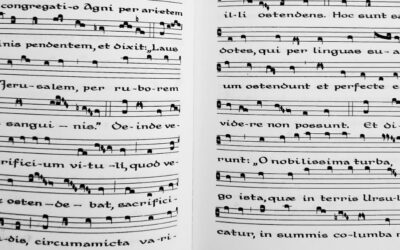 congregati-o Agni per arietem
inis pendentem, et dixit: „Laus
Jerusalem, per ruborem
sangui – nis.” Deinde ve-
rifici-um vitu-li, quod ve-
osten-de-bat, sacrifici-
dis, circumamicta vari-
il-li ostendens. Hoc sunt sa
dotes, qui per linguas su-a
um ostendunt et perfecte e
vide-re non possunt. Et di-
runt: „O nobilissima turba,
go ista, quæ in terris Ursul
catur, in summis columba n